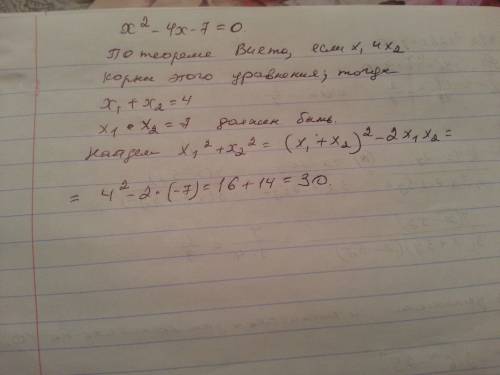 x² - 4x - 7 = 0.
По теореме Виета, если x₁ и x₂
корни этого уравнения, тогда
x₁ + x₂ = 4
x₁ • x₂ = -7 должен быть.
Найдем x₁² + x₂² = (x₁ + x₂)² - 2x₁x₂ =
= 4² - 2 • (-7) = 16 + 14 = 30.